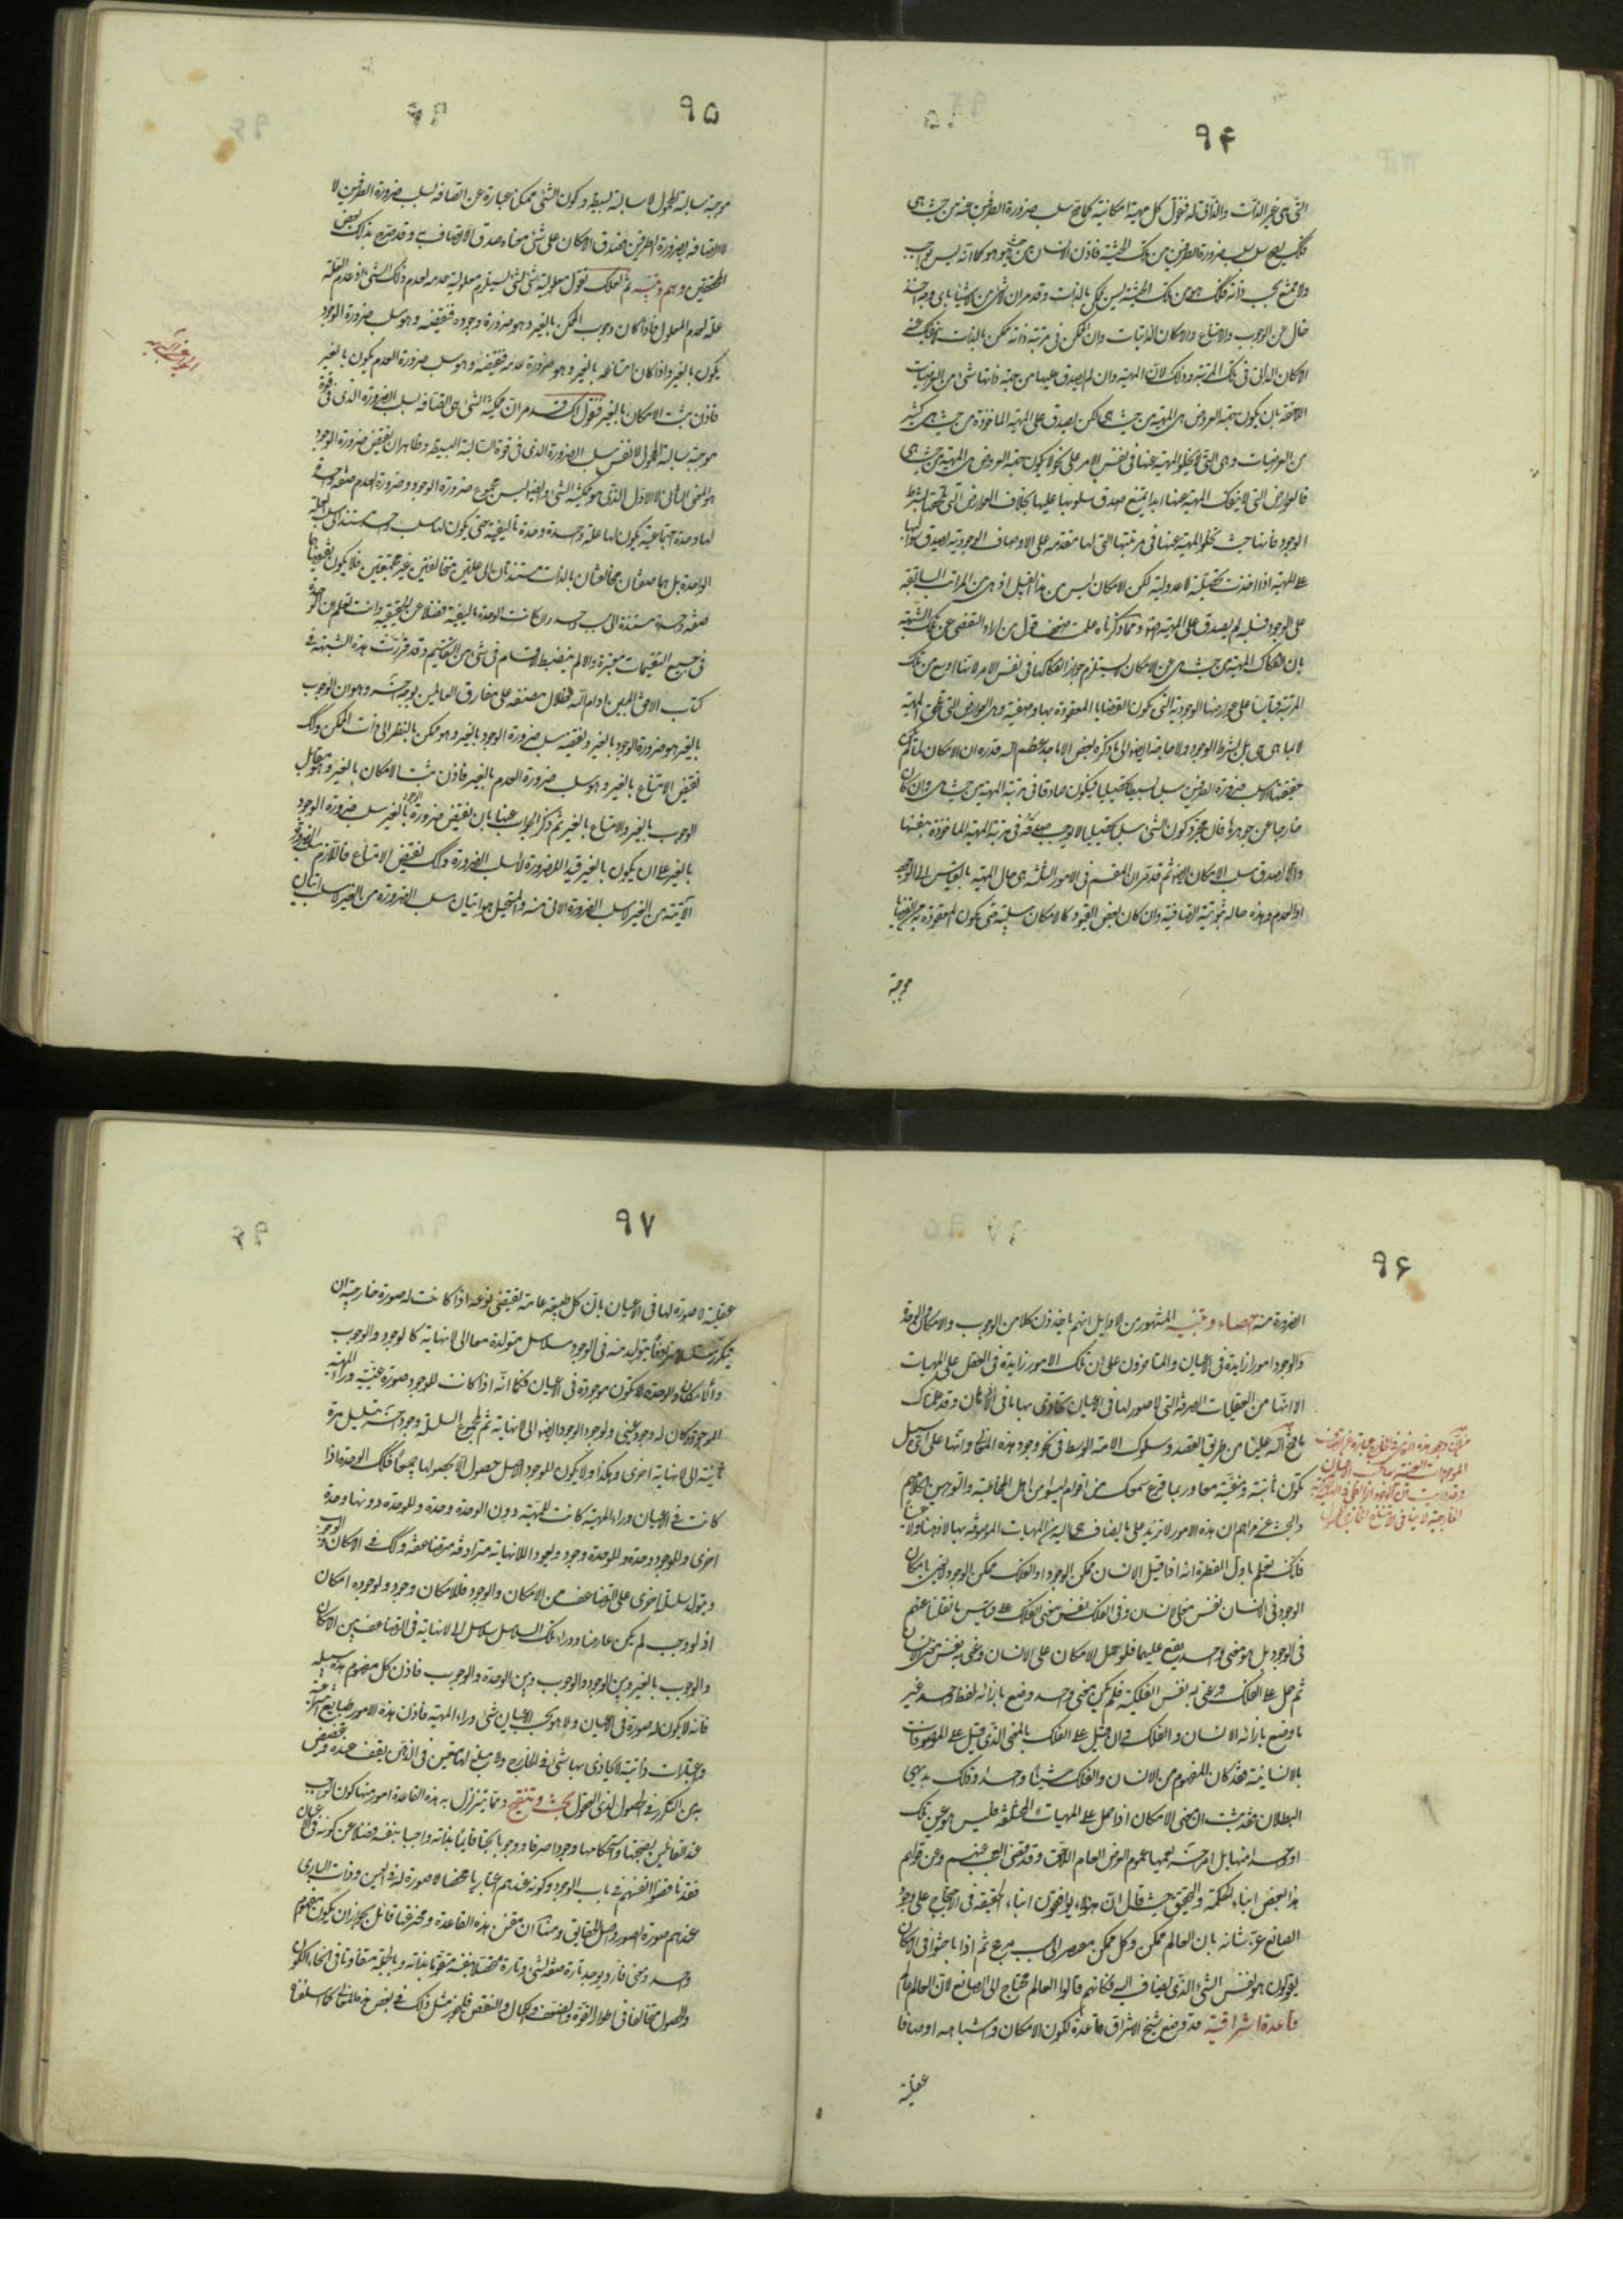 ۹۴
التی هی غیر الذات والذاتی له فنقول کل مهیة امکانیة کما صح سلب ضرورة الطرفین عنه من حیث هی
فکک یصح سلب سلب ضرورة الطرفین من تلک الحیثیة فاذن الانسان من حیث هو هو کما انه لیس بواجب
ولا ممتنع بحسب ذاته فکک هو من تلک الحیثیة لیس بممکن بالذات وقد مر ان کل شی من الاشیاء باى وجه اخذ
خال عن الوجوب والامتناع والامکان الذاتیات وان الممکن فی مرتبة ذاته ممکن بالذات
الامکان الذاتی فی تلک المرتبة وذلک لان المهیة وان لم یصدق علیها من حیث ذاتها شی من العرضیات
اللاحقة بان یکون حیثیة العروض هی المهیة من حیث هی لکن یصدق علی المهیة الماخوذة من حیث هی کثیر
من العرضیات وهی التی لا یخلو المهیة عنها فی نفس الامر علی نحو لا یکون حیثیة العروض هی المهیة من حیث هی
فالعوارض التی لا ینفک المهیة عنها ابدا یمتنع صدق سلوبها علیها بخلاف العوارض التی تلحقها بشرط
الوجود فانها حیث یخلو المهیة عنها فی مرتبتها التی لها متقدمة علی الاوصاف الوجودیة یصدق سوالبها
علی المهیة اذا اخذت تحصیلیة لا عدولیة لکن الامکان لیس من هذا القبیل اذ هی من المراتب السابقة
علی الوجود فسلبه لم یصدق علی المهیة اصلا ومما ذکرناه علمت ضعف قول من اراد التفصی عن تلک الشبهة
بان انفکاک المهیة من حیث هی عن الامکان لا یستلزم جواز انفکاکها فی نفس الامر لانها اوسع من تلک
المرتبة قیاسا علی عوارضها الوجودیة التی یکون القضایا المعقودة بها وصفیة وهی العوارض التی تلحق المهیة
لا بما هی هی بل بشرط الوجود ولا حاجة ایضا الی ما ذکره بعض الاماجد عظم الله قدره ان الامکان لما لم یکن
حقیقتها الا سلب ضرورة الطرفین سلبا بسیطا تحصیلیا فیکون صادقا فی مرتبة المهیة من حیث هی وان کان
خارجا عن جوهرها فان مجرد کون الشی سلبا تحصیلیا لا یوجب صدقه فی مرتبة المهیة الماخوذة بنفسها
والا لصدق سلب الامکان ایضا ثم قد مر ان المقسم فی الامور الثلثة هی حال المهیة بالقیاس الی الوجود
او العدم وهذه حالة ثبوتیة اتصافیة وان کان بعض القیود کالامکان سلبیة حتی یکون المعقودة به من القضایا
موجبة
۹۵
موجبة سالبة المحمول لا سالبة بسیطة وکون الشی ممکنا عبارة عن اتصافه بسلب ضرورة الطرفین لا
لا اتصافه بضرورة الطرفین فصدق الامکان علی شی معناه صدق الاتصاف به وقد صرح بذلک بعض
المحققین وهم وتنبیه ثم لعلک تقول معلولیة شی لشی یستلزم معلولیة عدمه لعدم ذلک الشی اذ عدم العلة
علة لعدم المعلول فاذا کان وجوب الممکن بالغیر وهو ضرورة وجوده فنقیضه وهو سلب ضرورة الوجود
یکون بالغیر واذا کان امتناعه بالغیر وهو ضرورة عدمه فنقیضه وهو سلب ضرورة العدم یکون بالغیر
فاذن ثبت الامکان بالغیر فنقول لک قد مر ان ممکنیة الشی هی اتصافه بسلب الضرورة الذی فی قوة
موجبة سالبة المحمول لا نفس سلب الضرورة الذی فی قوة السالبة البسیطة وظاهر ان نقیض ضرورة الوجود
هو المعنی الثانی لا الاول الذی هو ممکنیة الشی وایضا لیس مجموع ضرورة الوجود وضرورة العدم صفة واحدة
لها وحدة اجتماعیة یکون لها علة واحدة وحدة تالیفیة حتی یکون لها سلب واحد مستند الی سلب العلة
الواحدة بل هما صفتان متخالفتان بالذات مستندتان الی علتین متخالفتین غیر مجتمعتین فلا یکون نقیضاهما
صفة واحدة مستندة الی سبب واحد وان کانت الوحدة تالیفیة فضلا عن الحقیقیة وانت تعلم ان الوحدة
فی جمیع التقسیمات معتبرة والا لم ینضبط الاقسام فی شی من التقاسیم وقد قررت هذه الشبهة فی
کتاب الافق المبین ادام الله ظلال مصنفه علی مفارق العالمین بوجه آخر وهو ان الوجوب
بالغیر هو ضرورة الوجود بالغیر ونقیضه سلب ضرورة الوجود بالغیر وهو ممکن بالنظر الی ذات الممکن وکک
نقیض الامتناع بالغیر وهو سلب ضرورة العدم بالغیر فاذن ثبت الامکان بالغیر وهو مقابل
الوجوب بالغیر والامتناع بالغیر ثم ذکر الجواب عنها بان نقیض ضرورة الوجود بالغیر سلب ضرورة الوجود
بالغیر علی ان یکون بالغیر قیدا للضرورة لا لسلب الضرورة وکک نقیض الامتناع فاللازم سلب الضرورة
الآتیة من الغیر لا سلب الضرورة الاتی منه والمستحیل هو اتیان سلب الضرورة من الغیر لا سلب اتیان
۹۶
الضرورة منه احصاء وتنبیه المشهور من الاوایل انهم یاخذون کلا من الوجوب والامکان والوحدة
والوجود امورا زایدة فی الاعیان والمتاخرون علی ان تلک الامور زایدة فی العقل علی المهیات
الا انها من العقلیات الصرفة التی لا صور لها فی الاعیان یحاذی بها ما فی الاذهان وقد علمناک
ما فتح الله علینا من طریق القصد وسلوک الامة الوسط فی نحو وجود هذه المعانی وانها علی ای سبیل
تکون ثابتة ومنفیة معا وربما قرع سمعک من اقوام لیسوا من اهل المخاطبة والتوجیه فی الکلام
والبحث عن مرامهم ان هذه الامور لا تزید علی ما یضاف هی الیه من المهیات الموصوفة بها لا ذهنا ولا عینا
فانک تعلم باول الفطرة انه اذا قیل الانسان ممکن الوجود او الفلک ممکن الوجود لا یعنی بامکان
الوجود فی الانسان نفس معنی الانسان وفی الفلک نفس معنی الفلک علی قیاس ما نقلنا عنهم
فی الوجود بل هو معنی واحد یقع علیهما فلو حمل الامکان علی الانسان وعنی به نفس معنی الانسان
ثم حمل علی الفلک وعنی به نفس الفلکیة فلم یکن معنی واحد وضع بازائه لفظ واحد غیر
ما وضع بازائه الانسان والفلک وان قیل علی الفلک بالمعنی الذی قیل علی الموصوفات
بالانسانیة فقد کان المفهوم من الانسان والفلک شیئا واحدا وذلک بدیهی
البطلان فقد ثبت ان معنی الامکان اذا حمل علی المهیات المختلفة فلیس هو عین تلک
او واحد منها بل امر آخر یعمها عموم العرض العام اللاحق وقد یقضی التعجب منهم وعن قوام
هذا البعض ابناء الحکمة والتحقیق حیث قال ان هؤلاء یوافقون ابناء الحقیقة فی الاحتجاج علی وجود
الصانع عز شانه بان العالم ممکن وکل ممکن مفتقر الی سبب مرجح ثم اذا باحثوا فی الامکان
یقولون هو نفس الشی الذی یضاف الیه فکانهم قالوا العالم محتاج الی الصانع لان العالم عالم
قاعدة اشراقیة قد وضع شیخ الاشراق قاعدة لکون الامکان واشباهه اوصافا
عقلیة
۹۷
عقلیة لا صورة لها فی الاعیان بان کل طبیعة عامة یقتضی نوعه اذا کانت له صورة خارجیة ان
یتکرر متسلسلا مترادفا یتولد منه فی الوجود سلاسل متولدة معا الی لا نهایة کالوجود والوجوب
والامکان والوحدة لا تکون موجودة فی الاعیان فکما انه اذا کانت للوجود صورة عینیة وراء المهیة
الموجودة کان له وجود عینی ولوجود الوجود ایضا الی لا نهایة ثم لمجموع السلسلة وجود آخر یتسلسل مرة
ثانیة الی لا نهایة اخری وهکذا ولا یکون للوجود الاصل حصول الا بحصولها جمیعا فکک الوحدة اذا
کانت فی الاعیان وراء المهیة کانت للمهیة دون الوحدة وحدة وللوحدة دونها وحدة
اخری وللوجود وحدة وللوحدة وجود ویعود اللانهایة مترادفة متضاعفة وکک فی الامکان والوجوب
ویتولد سلسلة اخری علی التضاعف من الامکان والوجود فللامکان وجود ولوجوده امکان
اذ لو وجب لم یکن عارضا ووراء تلک السلاسل سلاسل الی لا نهایة فی التضاعف بین الامکان
والوجوب بالغیر وبین الوجود والوجوب وبین الوحدة والوجوب فاذن کل مفهوم هذا سبیله
فانه لا یکون له صورة فی الاعیان ولا هو بحسب الاعیان شی وراء المهیة فاذن هذه الامور طبایع انتزاعیة
واعتبارات ذهنیة لا یحاذی بها شی فی الخارج ولا مبلغ لها متعین فی الذهن یقف عنده
بحث وتنقیح ومما یتزلزل به هذه القاعدة امور منها کون الواجب
عند القائلین بصحتها واستحکامها وجودا صرفا ووجوبا بحتا قایما بذاته واجبا بنفسه فضلا عن کونه فی الاعیان
فقد ناقضوا انفسهم فی باب الوجود وکونه عندهم اعتباریا محضا لا صورة له فی العین وذات الباری
عندهم صورة الصور واصل الحقایق ومنها ان مقنن هذه القاعدة ومخترعها قائل بجواز ان یکون مفهوم
واحد ومعنی فارد یوجد تارة صفة لشی وتارة متحصلا بنفسه متقوما بذاته وبالجملة متفاوتا فی انحاء الکون
والحصول متخالفا فی اطوار القوة والضعف والکمال والنقص فلیجز مثل ذلک فی بعض هذه المعانی کما اسلفناه